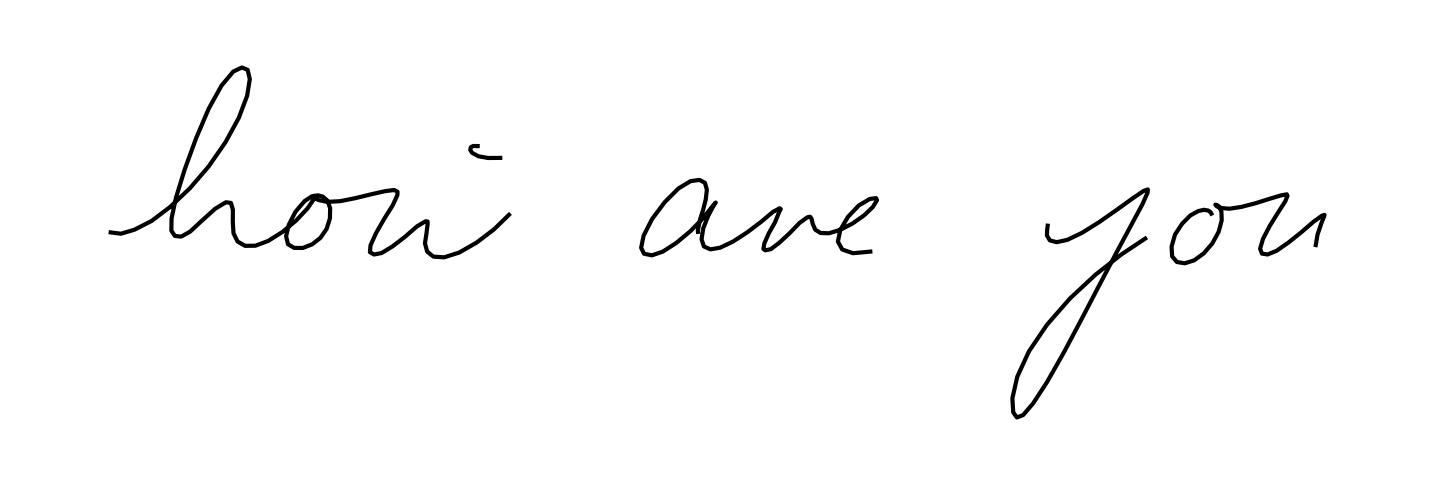 how are you